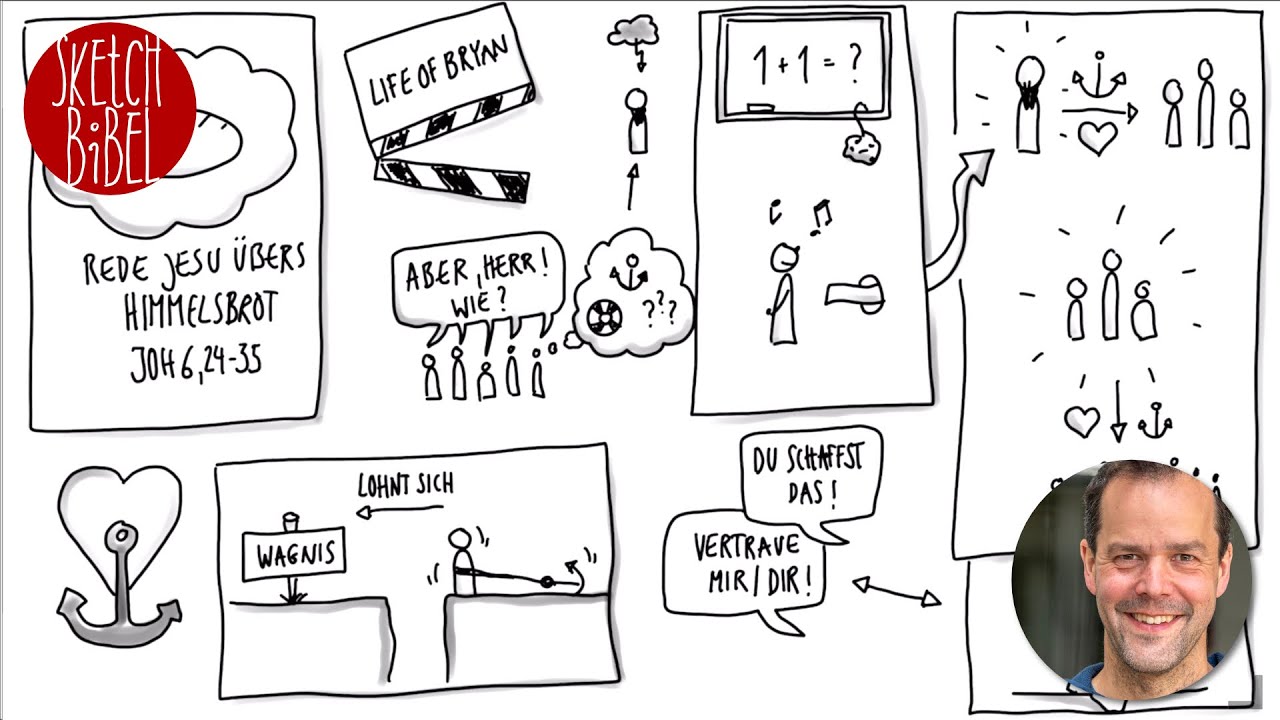 SKETCH
BIBEL
REDE JESU ÜBERS
HIMMELSBROT
JOH 6,24-35
LIFE OF BRYAN
ABER, HERR!
WIE?
???
1+1=?
LOHNT SICH
WAGNIS
DU SCHAFFST
DAS!
VERTRAUE
MIR/DIR!